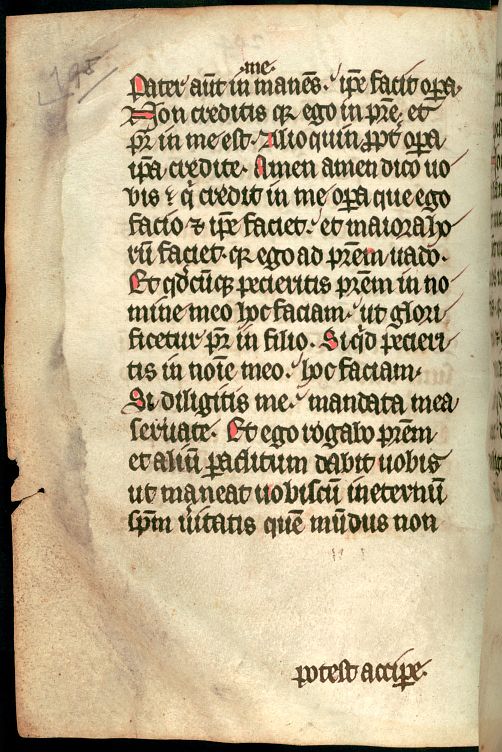 195
·me·
Pater aūt in manēs. ip̄e facit oꝑa.
Non creditis qꝛ ego in pr̄e. et
pr̄ in me est. Alioquin ꝓpt̄ oꝑa
ip̄a credite. Amen amen dico uo
bis ⁊ q̄ credit in me oꝑa que ego
facio ⁊ ip̄e faciet. et maiora ho
rū faciet. qꝛ ego ad prēm uado.
Et qdcūqꝫ pecieritis prēm in no
mine meo hoc faciam. ut glori
ficetur pr̄ in filio. Si qd pecieri
tis in noīe meo. hoc faciam.
Si diligitis me. mandata mea
seruate. Et ego rogabo prēm
et aliū ꝑaclitum dabit uobis
ut maneat uobiscū in eternū
spm̄ ūitatis quē mūdus non
potest acciꝑe.